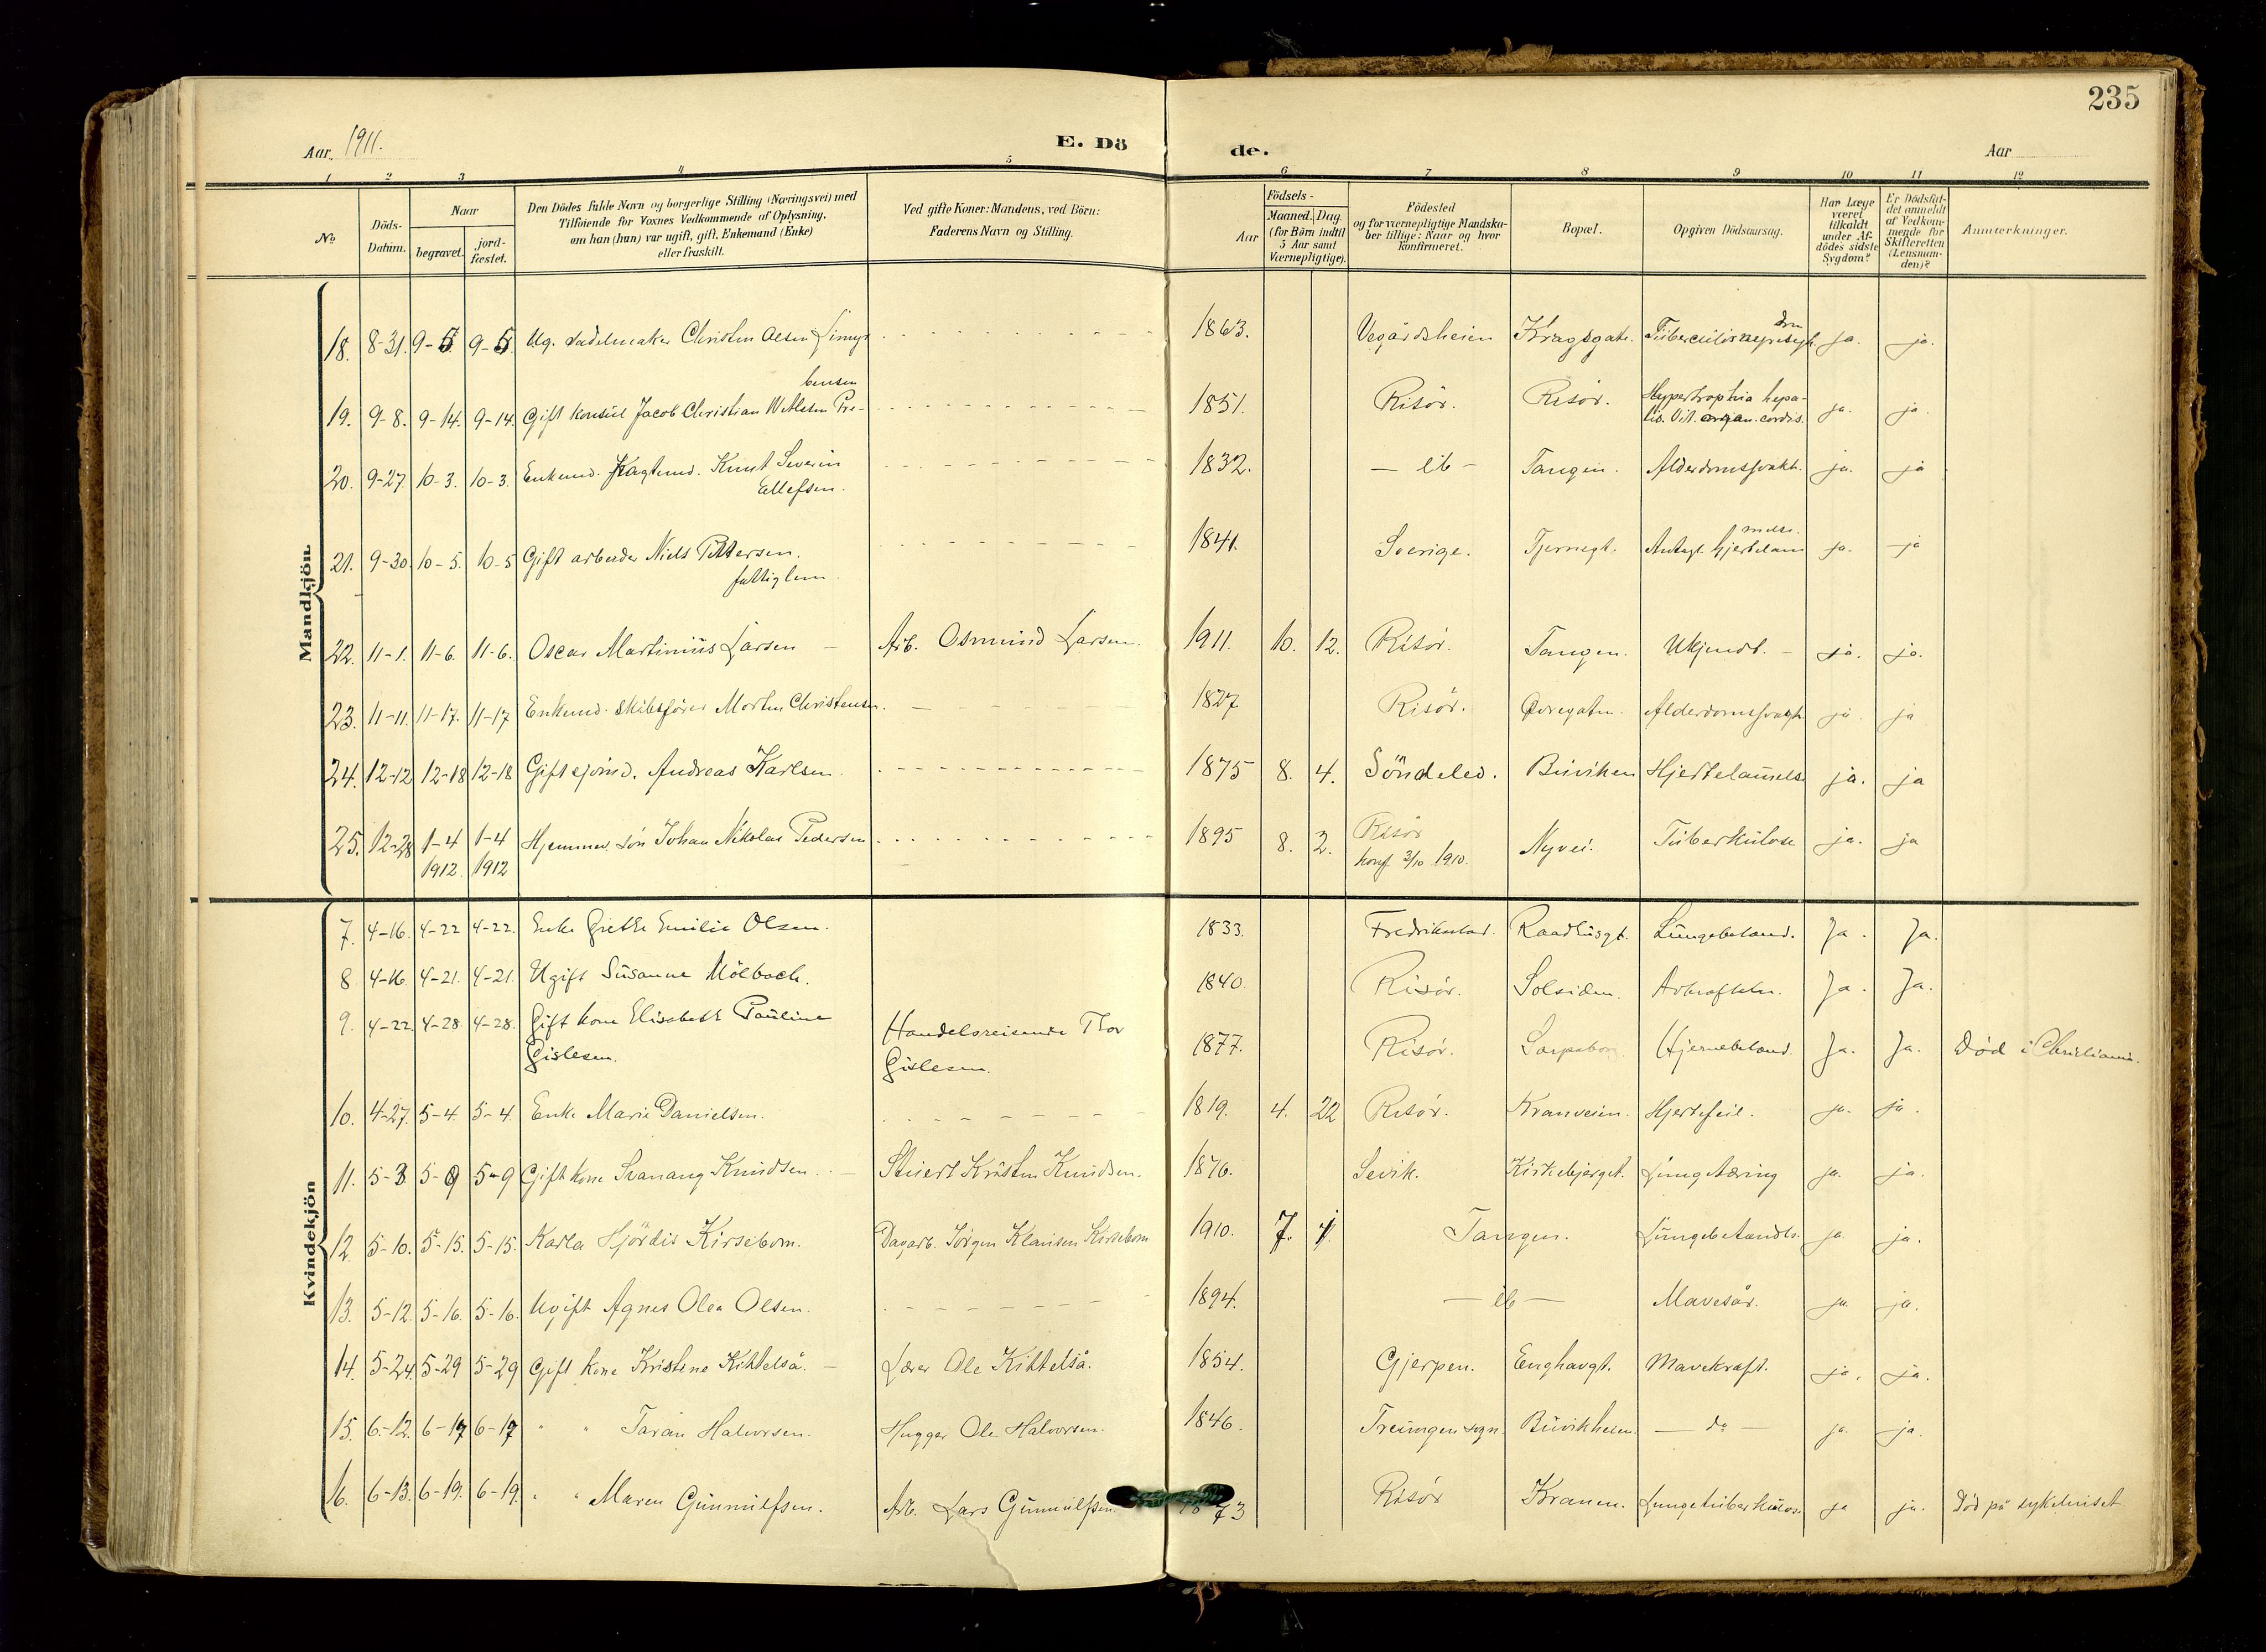 235
Aar 1911.
E. Dö
de.
Aar
1 2 3 4 5 6 7 8 9 10 11 12
No
Döds-Datum.
Naar
begravet.
jord-fæstet.
Den Dödes fulde Navn og borgerlige Stilling (Næringsvei) med
Tilföiende for Voxnes Vedkommende af Oplysning,
om han (hun) var ugift, gift, Enkemand (Enke)
eller fraskilt.
Ved gifte Koner: Mandens, ved Börn:
Faderens Navn og Stilling.
Aar
Födsels-
Maaned. Dag.
(for Börn indtil
5 Aar samt
Værnepligtige).
Födested
og for værnepligtige Mandska-
ber tillige: Naar og hvor
konfirmeret.
Bopæl.
Opgiven Dödsaarsag.
Har Læge
været
tilkaldt
under Af-
dödes sidste
Sygdom?
Er Dödsfal-
det anmeldt
af Vedkom-
mende for
Skifteretten
(Lensman-
den)?
Anmærkninger.
Mandkjön.
18. 8-31. 9-5. 9-5. Ug. sadelmaker Christen Olsen 1863. Vegårdsheien Kragsgate. ja. ja.
19. 9-8. 9-14. 9-14. Gift konsul Jacob Christian Withlesen Pre-bensen 1851. Risör. Risör. Hypertrophia hepa-tis. Vit. organ. cordis. ja. ja
20. 9-27. 10-3. 10-3. Enkemd. Knut Severin Ellefsen. 1832. - ib - Tangen. Alderdomssvakh. ja. ja
21. 9-30. 10-5. 10-5 Gift arbeider Niels Pettersen. fattiglem. 1841. Sverige. Tjernegt. Antagl. hjertelammelse. ja. ja
22. 11-1. 11-6. 11-6. Oscar Martinius Larsen - Arb. Osmund Larsen. 1911. 10. 12. Risör. Tangen. Ukjendt. - ja. ja.
23. 11-11. 11-17. 11-17 Enkemd. skibsfører Morten Christensen. 1827 Risör. Övregaten. Alderdomssvagh. ja. ja
24. 12-12 12-18 12-18 Gift ejomd. Andreas Karlsen. 1875 8. 4. Söndeled. Buviken Hjertelammelse ja. ja
25. 12-28 1-4 1912. 1-4 1912 Hjemmev. sön Johan Nikolai Pedersen 1895 8. 2. Risör konf. 2/10 1910. Nyvei. Tuberkulose ja. ja
Kvindekjön
7. 4-16. 4-22 4-22. Enke Grethe Emilie Olsen. 1833. Fredrikstad. Raadhusgt. Lungebetænd. Ja. Ja.
8 4-16. 4-21. 4-21. Ugift Susanne Mölbach. 1840. Risör. Solsiden. Avkræftelse. Ja. Ja.
9. 4-22 4-28. 4-28. Gift kone Elisabeth Pauline Gislesen. Handelsreisende Thor Gislesen. 1877. Risör. Sarpsborg Hjernebetænd. Ja. Ja. Död i Christiania.
10. 4-27. 5-4. 5-4. Enke Marie Danielsen. 1819. 4. 22 Risör. Kranveien. Hjertefeil. ja. ja.
11. 5-3 5-9 5-9 Gift kone Svanaug Knudsen. Stuert Kristen Knudsen. 1876. Sevik. Kirkebjerget. Lungetæring ja. ja.
12 5-10. 5-15. 5-15. Karla Hjördis Kirsebom. Dagarb. Jörgen Klausen Kirsebom 1910. 7. 1. Tangen. Lungebetændls. ja. ja.
13. 5-12. 5-16. 5-16. Ugift Agnes Olea Olsen. 1894. - ib - Mavesår. ja. ja.
14. 5-24. 5-29 5-29 Gift kone Kristine Kittelså. - Lærer Ole Kittelså. 1854. Gjerpen. Enghavgt. Mavekræft. ja. ja.
15. 6-12. 6-17 6-17 " " Taran Halvorsen. Hugger Ole Halvorsen. 1846. Treungen sogn. Buvikheien. - do - ja. ja.
16. 6-13. 6-19. 6-19. " " Maren Gunnulfsen. Arb. Lars Gunnulfsen 1873 Risör Kranen. Lungetuberkulose. ja ja. Död på sykehuset.